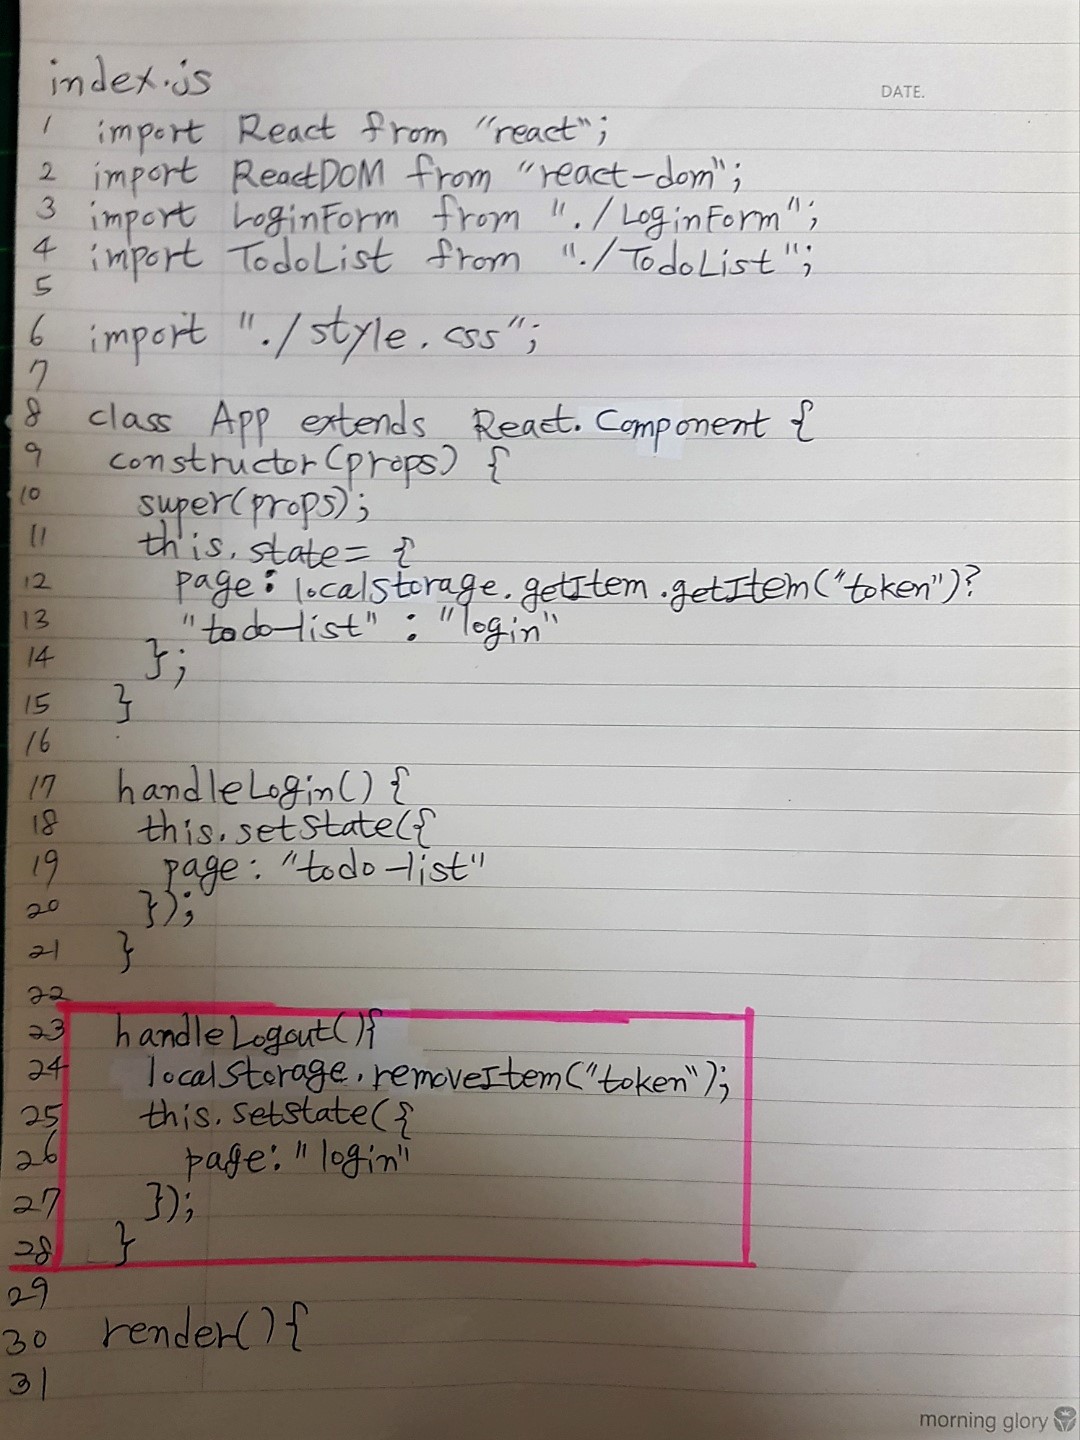 index.js
DATE.
1 import React from "react";
2 import ReactDOM from "react-dom";
3 import LoginForm from "./LoginForm";
4 import TodoList from "./TodoList";
5
6 import "./style.css";
7
8 class App extends React.Component {
9 constructor(props) {
10 super(props);
11 this.state= {
12 page: localStorage.getItem.getItem("token")?
13 "todo-list" : "login"
14 };
15 }
16
17 handleLogin() {
18 this.setState({
19 page: "todo-list"
20 });
21 }
22
23 handleLogout(){
24 localStorage.removeItem("token");
25 this.setState({
26 page: "login"
27 });
28 }
29
30 render(){
31
morning glory